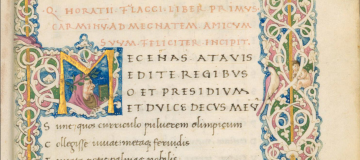 Q. HORATII FLACCI LIBER PRIMVS
CARMINVM AD MECHATEM AMICVM
SVVM FELICITER INCIPIT.
MECENAS ATAVIS
EDITE REGIBVS
O ET PRESIDIVM
ET DVLCE DECVS MEV̄
Sunt quos curriculo puluerem olimpicum
Collegisse iuuat metaq; feruidis
palma nobilis